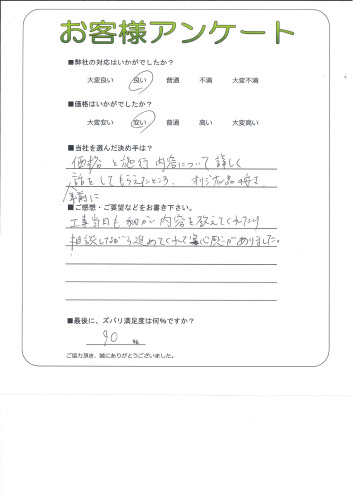 お客様アンケート
■弊社の対応はいかがでしたか？
大変良い 良い 普通 不満 大変不満
■価格はいかがでしたか？
大変安い 安い 普通 高い 大変高い
■当社を選んだ決め手は？
価格と施行内容について詳しく
話をしてもらえたところ、オリジナル品の安さ
事前に
■ご感想・ご要望などをお書き下さい。
工事当日も細かい内容を教えてくれたり
相談しながら進めてくれて安心感がありました。
■最後に、ズバリ満足度は何%ですか？
90 %
ご協力頂き、誠にありがとうございました。